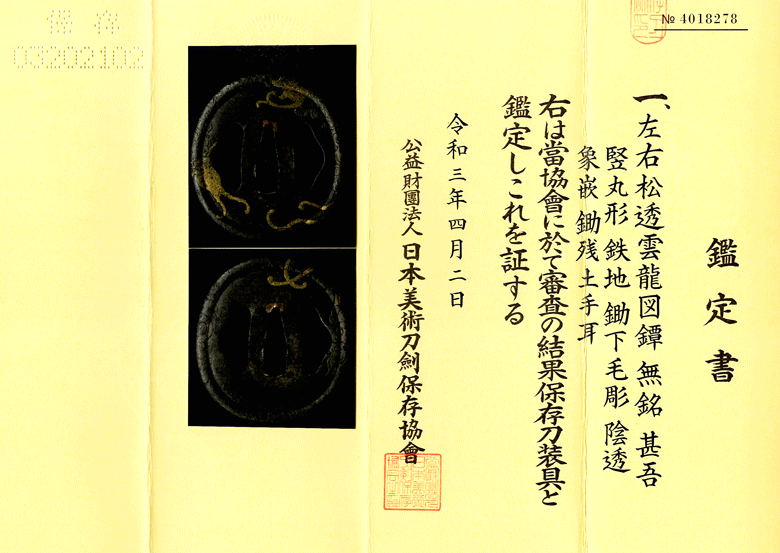 № 4018278
鑑定書
一、左右松透雲龍図鐔 無銘 甚吾
竪丸形 鉄地 鋤下毛彫 陰透
象嵌 鋤残土手耳
右は當協會に於て審査の結果保存刀装具と
鑑定しこれを証する
令和三年四月二日
公益財團法人 日本美術刀劍保存協會
保存
03202102